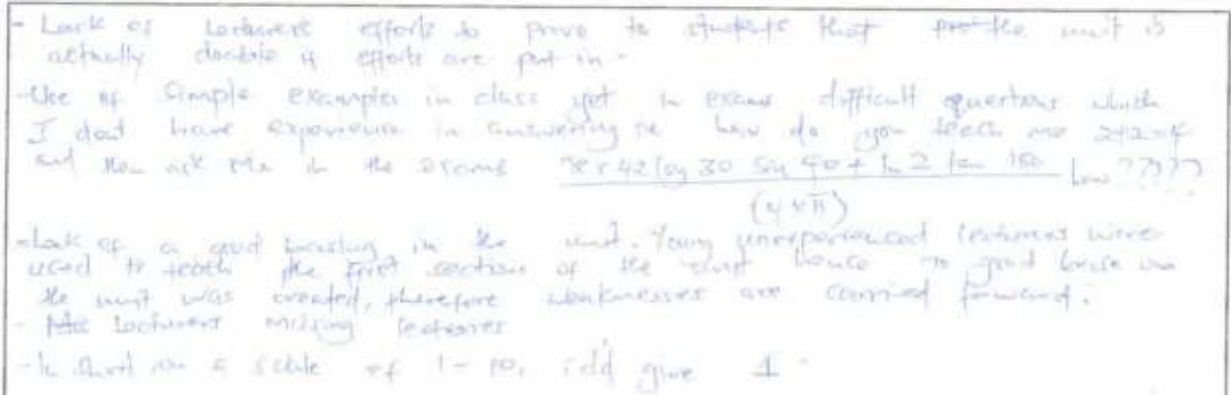 - Lack of Lecturers efforts to prove to students that the unit is
actually doable if efforts are put in -
- Use of Simple examples in class yet in exams difficult questions which
I dont have experience in answering ie how do you teach me 2+2=4
and then ask me in the exams log 30 sin 40 + ln 2 tan 150 how ?????
- Lack of a good in the unit. Young unexperienced lecturers were
used to teach the first section of the unit hence no good base in
the unit was created, therefore weaknesses are carried forward.
- Lecturers missing lectures
- In short on a scale of 1 - 10, i'dd give 1 -